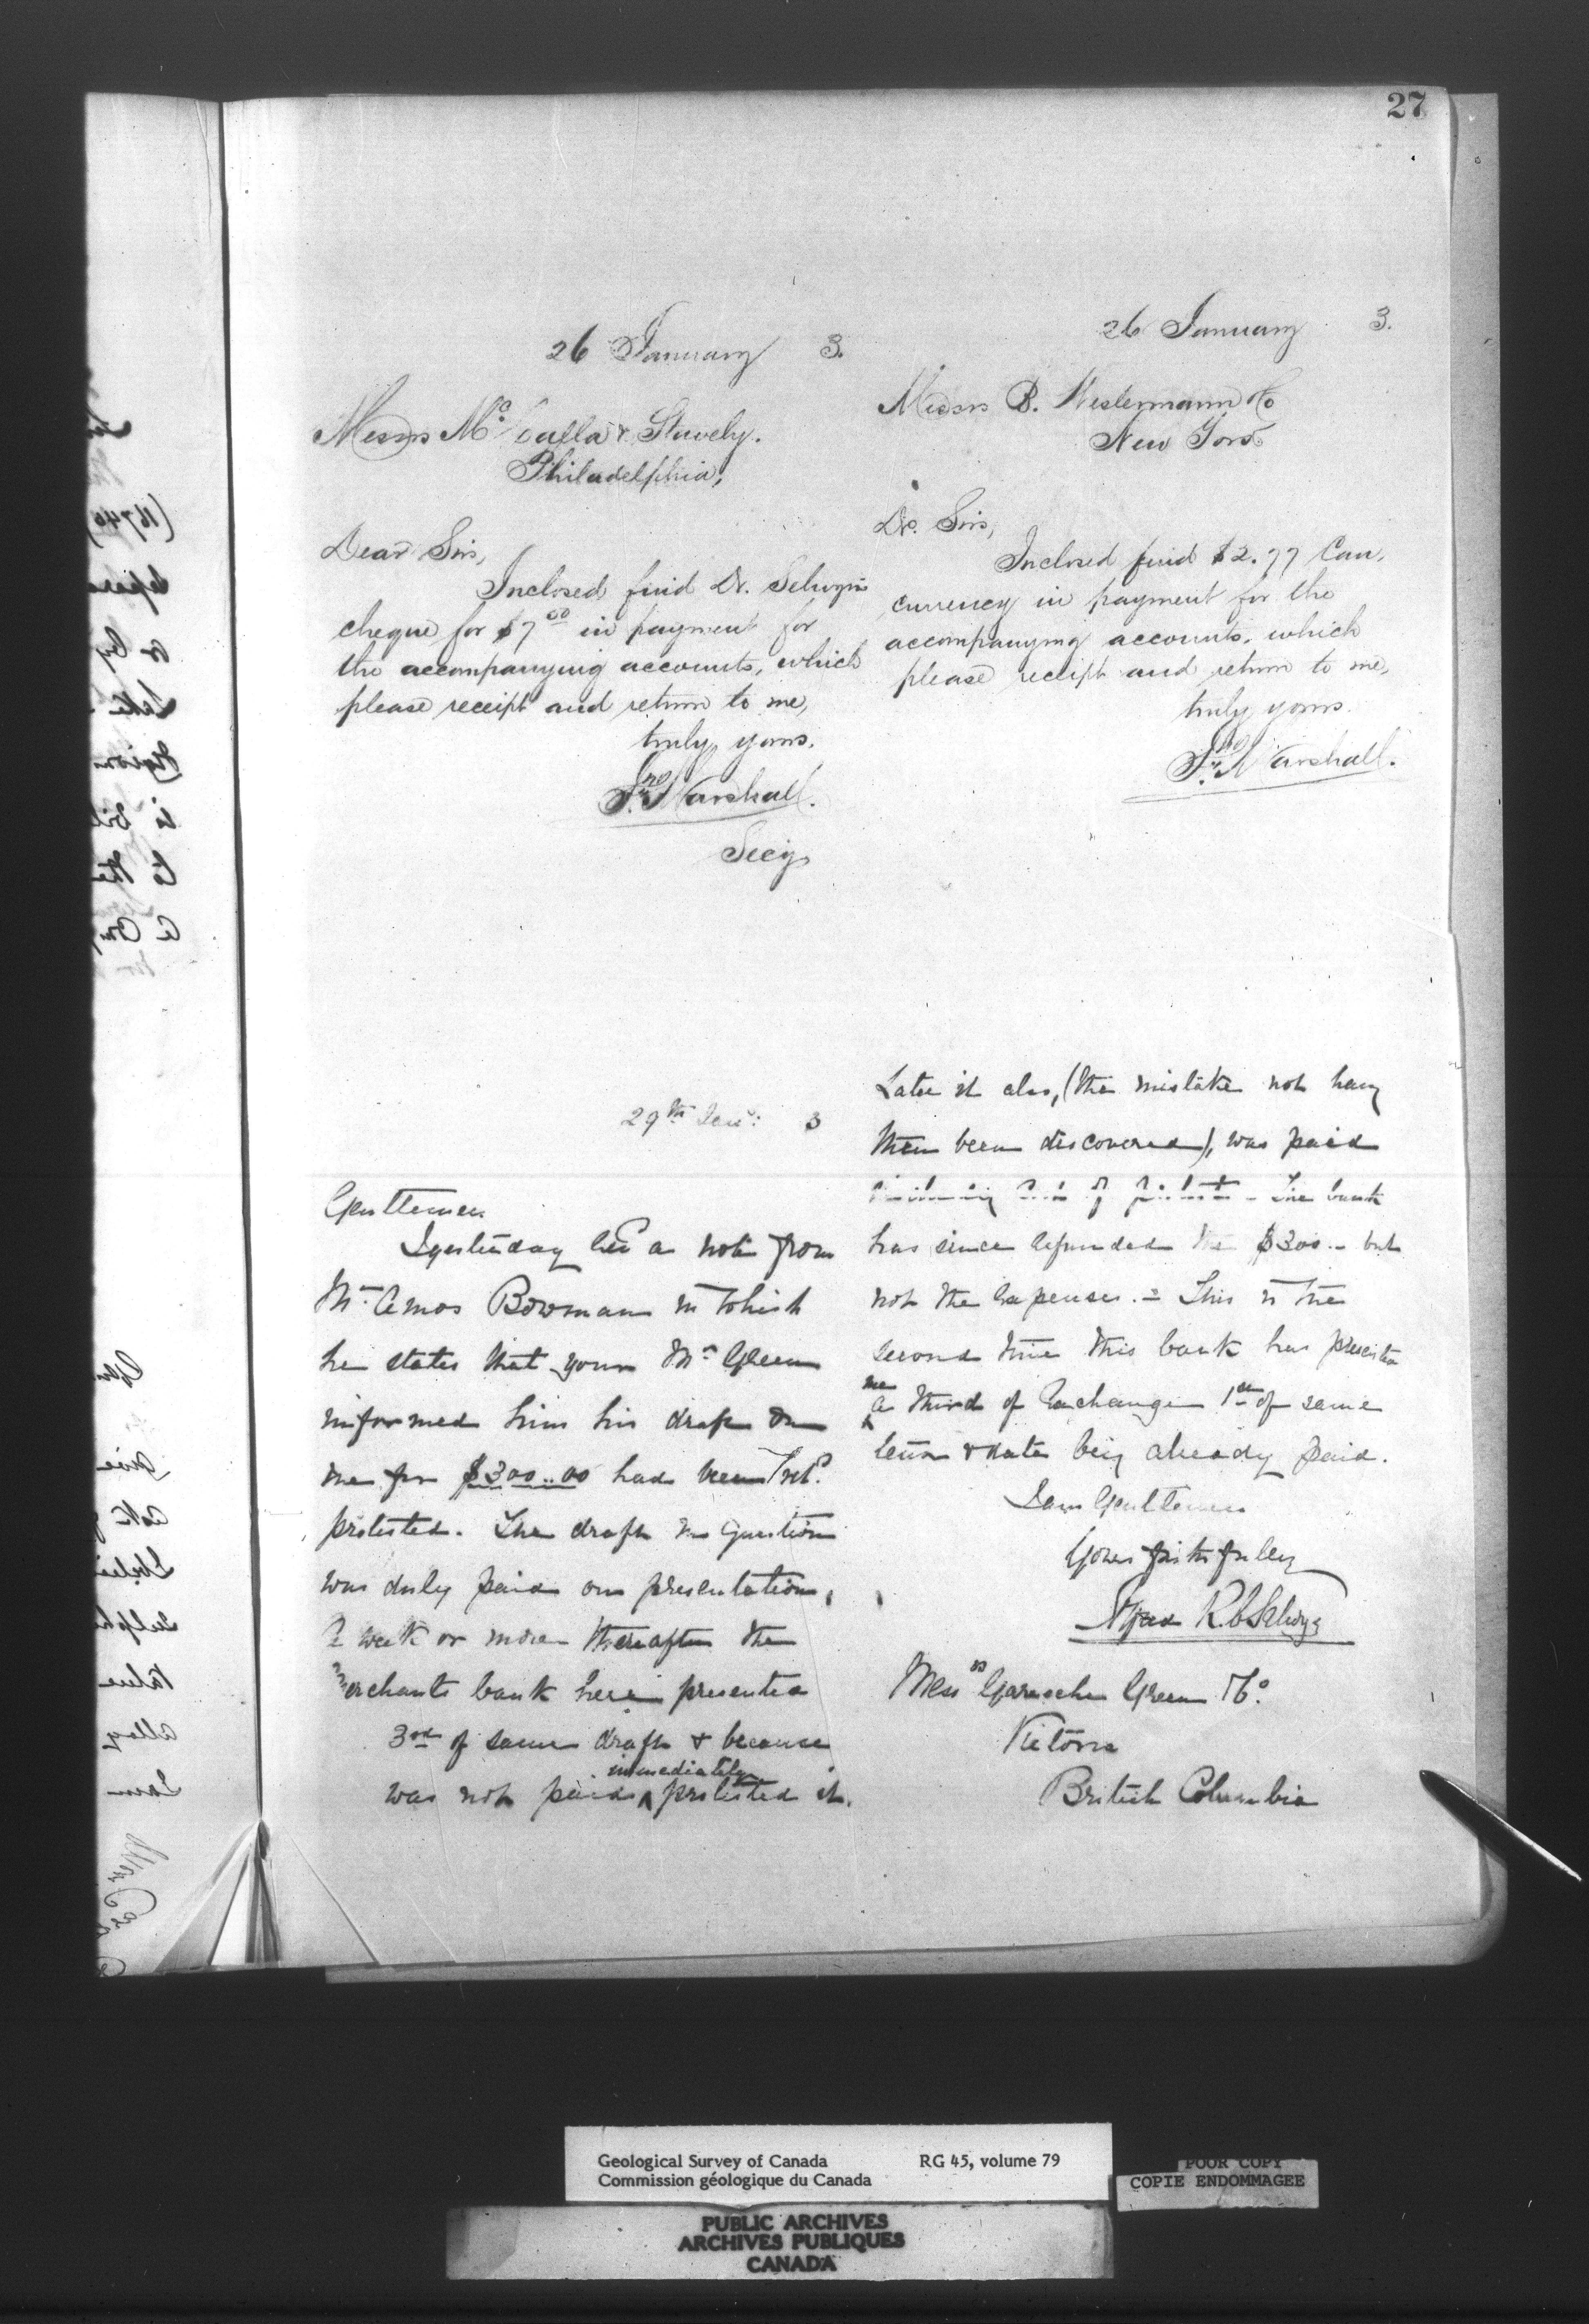 27
26 January 3.
Messrs McCalla & Stavely.
Philadelphia,
Dear Sirs,
Inclosed find Dr. Selwyn's
cheque for $7 00 in payment for
the accompanying accounts, which
please receipt and return to me,
truly yours.
Jno Marshall.
Secy
26 January 3.
Messrs B. Westermann & Co
New York
Dr. Sirs,
Inclosed find $2.77 Can.
currency in payment for the
accompanying accounts, which
please receipt and return to me,
truly yours.
Jno Marshall.
29th Jan: 3
Gentlemen
I yesterday a note from
Mr Amos Bowman in which
he states that your Mr Green
informed him his draft on
me for $300..00 had been retd
protested. The draft in question
was duly paid on presentation,
A week or more thereafter the
merchants bank here presented
3rd of same draft & because
was not paid immediately protested it.
Later it also, (the mistake not havg
then been discovered), was paid
of The bank
has since refunded the $300.- but
not the expenses. - This is the
second time this bank has presented
me a third of Exchange 1st of same
& date being already paid.
I am Gentlemen
Yours faithfully
Alfred R. C. Selwyn
Messrs Garesche Green & Co.
Victoria
British Columbia
Geological Survey of Canada RG 45, volume 79
Commission géologique du Canada
POOR COPY
COPIE ENDOMMAGEE
PUBLIC ARCHIVES
ARCHIVES PUBLIQUES
CANADA